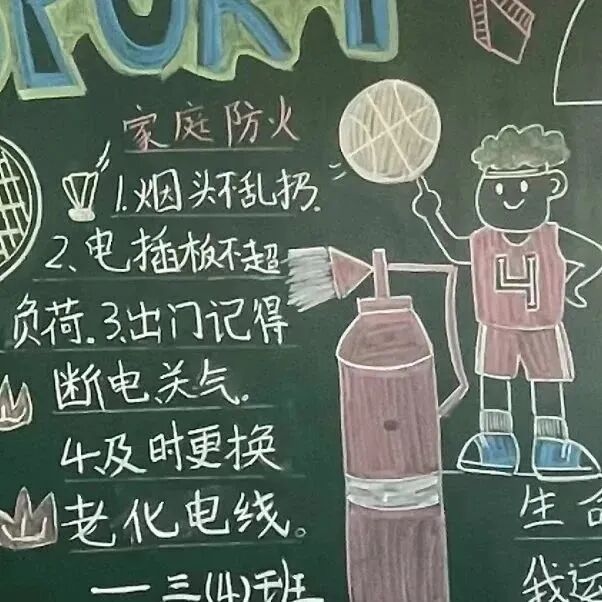 SPORT
家庭防火
1.烟头不乱扔.
2、电插板不超
负荷.3.出门记得
断电关气.
4及时更换
老化电线。
一三(4)班
4
生命
我运